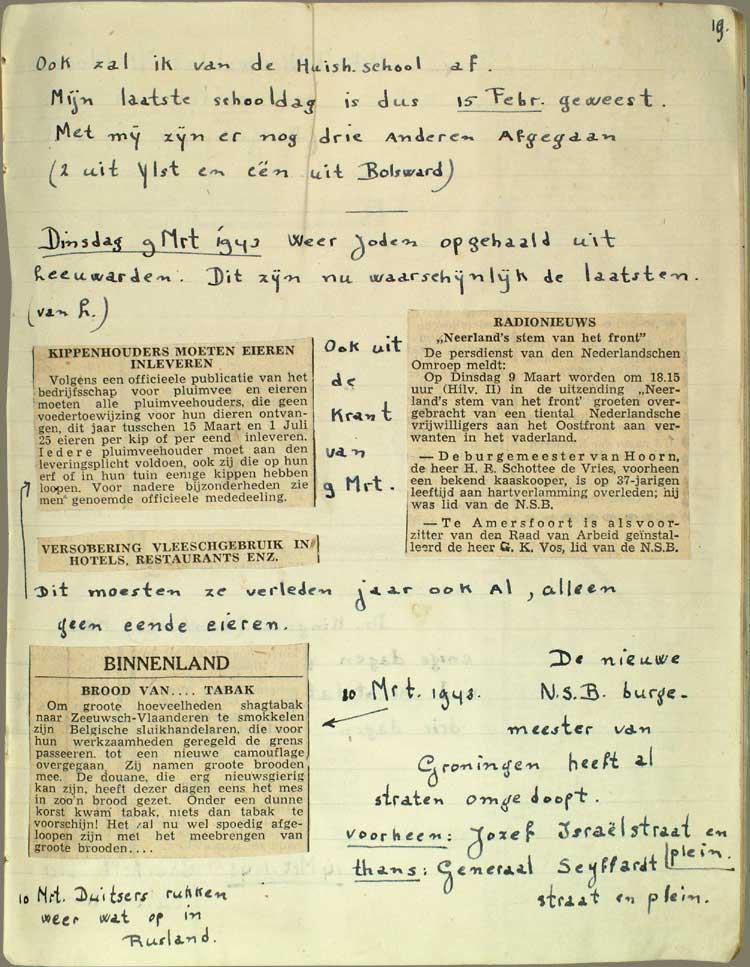 19.
Ook zal ik van de Huish. school af.
Mijn laatste schooldag is dus 15 Febr. geweest.
Met mij zijn er nog drie Anderen Afgegaan
(2 uit Ylst en één uit Bolsward)
Dinsdag 9 Mrt 1943 Weer Joden opgehaald uit
Leeuwarden. Dit zijn nu waarschijnlijk de laatsten.
(van L.)
KIPPENHOUDERS MOETEN EIEREN
INLEVEREN
Volgens een officieele publicatie van het
bedrijfsschap voor pluimvee en eieren
moeten alle pluimveehouders, die geen
voedertoewijzing voor hun dieren ontvan-
gen, dit jaar tusschen 15 Maart en 1 Juli
25 eieren per kip of per eend inleveren.
Iedere pluimveehouder moet aan den
leveringsplicht voldoen, ook zij die op hun
erf of in hun tuin eenige kippen hebben
loopen. Voor nadere bijzonderheden zie
men genoemde officieele mededeeling.
VERSOBERING VLEESCHGEBRUIK IN
HOTELS, RESTAURANTS ENZ.
Ook uit
de
Krant
van
9 Mrt.
RADIONIEUWS
„Neerland's stem van het front"
De persdienst van den Nederlandschen
Omroep meldt:
Op Dinsdag 9 Maart worden om 18.15
uur (Hilv. II) in de uitzending „Neer-
land's stem van het front' groeten over-
gebracht van een tiental Nederlandsche
vrijwilligers aan het Oostfront aan ver-
wanten in het vaderland.
— De burgemeester van Hoorn,
de heer H. R. Schottee de Vries, voorheen
een bekend kaaskooper, is op 37-jarigen
leeftijd aan hartverlamming overleden; hij
was lid van de N.S.B.
— Te Amersfoort is als voor-
zitter van den Raad van Arbeid geïnstal-
leerd de heer G. K. Vos, lid van de N.S.B.
Dit moesten ze verleden jaar ook Al, alleen
geen eende eieren.
BINNENLAND
BROOD VAN.... TABAK
Om groote hoeveelheden shagtabak
naar Zeeuwsch-Vlaanderen te smokkelen
zijn Belgische sluikhandelaren, die voor
hun werkzaamheden geregeld de grens
passeeren, tot een nieuwe camouflage
overgegaan. Zij namen groote brooden
mee. De douane, die erg nieuwsgierig
kan zijn, heeft dezer dagen eens het mes
in zoo'n brood gezet. Onder een dunne
korst kwam tabak, niets dan tabak te
voorschijn! Het zal nu wel spoedig afge-
loopen zijn met het meebrengen van
groote brooden....
10 Mrt. 1943.
De nieuwe
N.S.B. burge-
meester van
Groningen heeft al
straten omgedoopt.
voorheen: Jozef Israëlstraat en
plein.
thans: Generaal Seyffardt
straat en plein.
10 Mrt. Duitsers rukken
weer wat op in
Rusland.